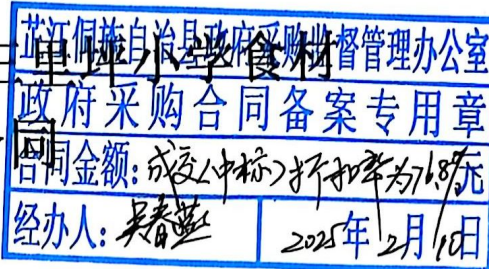 芷江侗族自治县政府采购监督管理办公室
三里坪小学食材
政府采购合同备案专用章
同
合同金额：成交（中标）折扣率为76.8%元
经办人：吴春燕 2025年12月10日